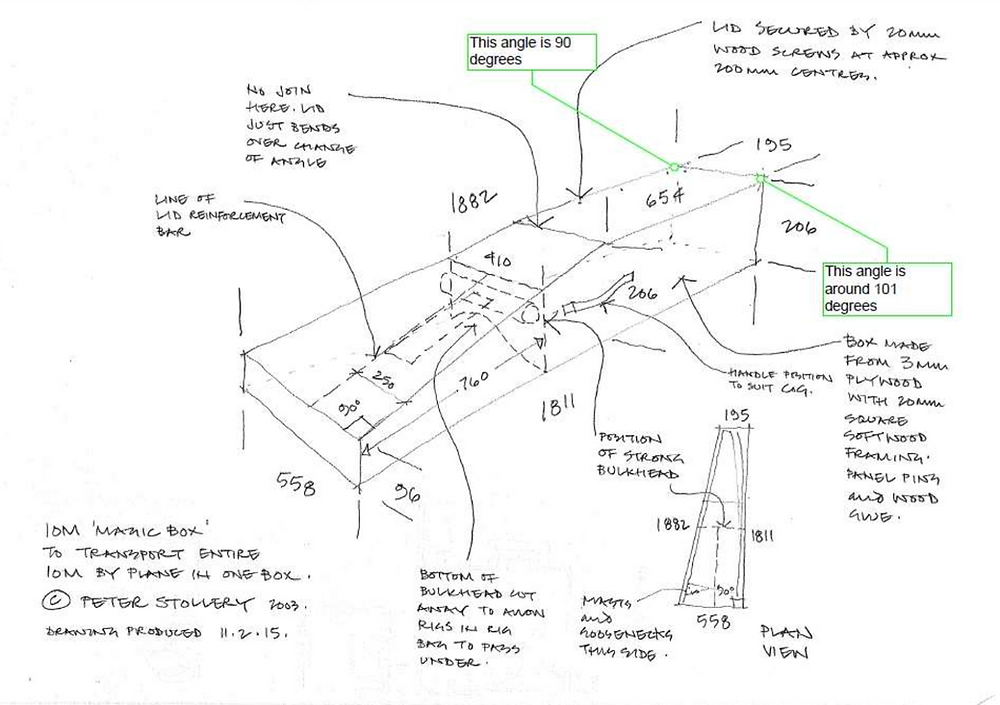 LID SECURED BY 20mm
WOOD SCREWS AT APPROX
200mm CENTRES.
This angle is 90
degrees
NO JOIN
HERE. LID
JUST BENDS
OVER CHANGE
OF ANGLE
LINE OF
LID REINFORCEMENT
BAR
1882
195
654
206
410
206
This angle is
around 101
degrees
250
760
90°
558
96
1811
HANDLE POSITION
TO SUIT CoG.
BOX MADE
FROM 3mm
PLYWOOD
WITH 20mm
SQUARE
SOFTWOOD
FRAMING.
PANEL PINS
and WOOD
GLUE.
POSITION
OF STRONG
BULKHEAD
195
1882
1811
90°
558
PLAN
VIEW
MASTS
and
GOOSENECKS
THIS SIDE.
BOTTOM OF
BULKHEAD CUT
AWAY TO ALLOW
RIGS IN RIG
BAG TO PASS
UNDER.
IOM 'MAGIC BOX'
TO TRANSPORT ENTIRE
IOM BY PLANE IN ONE BOX.
© PETER STOLLERY 2003.
DRAWING PRODUCED 11.2.15.